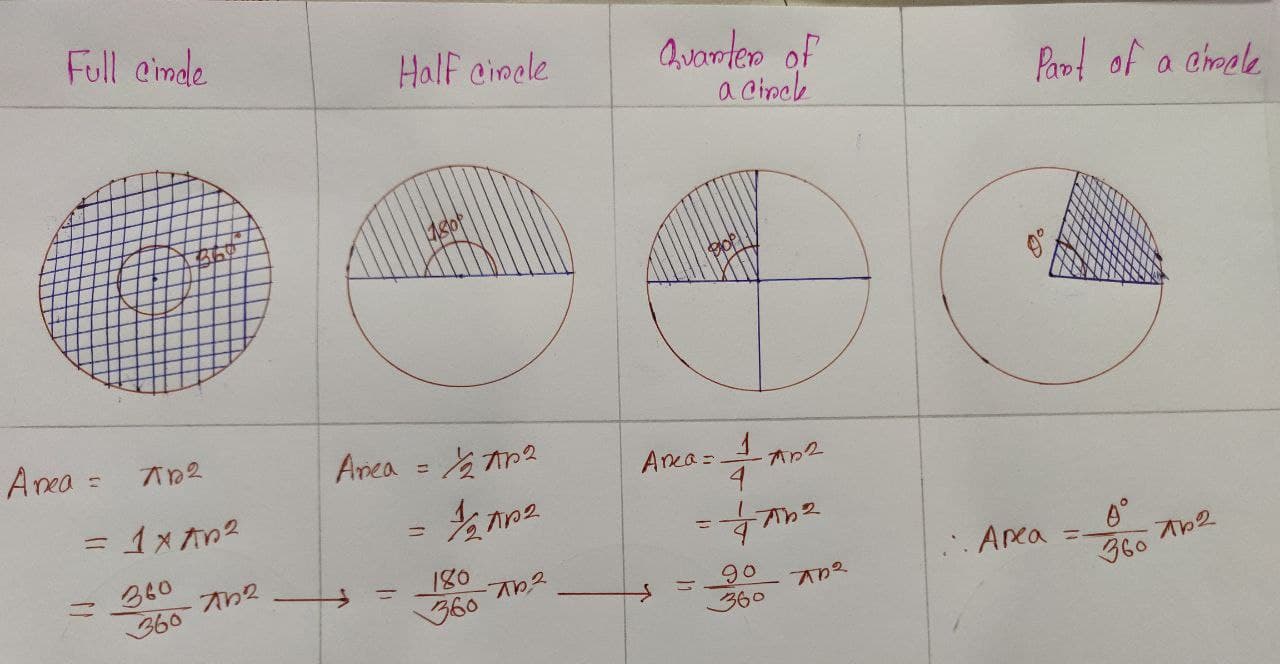 Full circle
Half circle
Quarter of
a circle
Part of a circle
360°
180°
90°
θ°
Area = πr²
= 1 × πr²
= 360/360 πr² →
Area = 1/2 πr²
= 1/2 πr²
= 180/360 πr² →
Area = 1/4 πr²
= 1/4 πr²
= 90/360 πr²
∴ Area = θ°/360 πr²